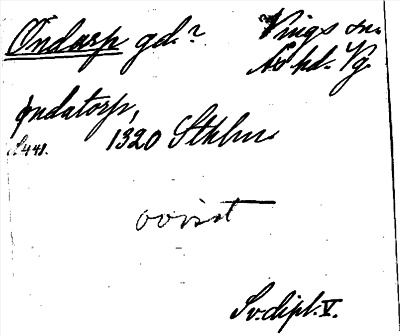 Öndarp gd.? Vings sn.
Ås hd. Vg.
øndatorp,
S. 441. 1320 Sthlm
ovisst
Sv. dipl. V.